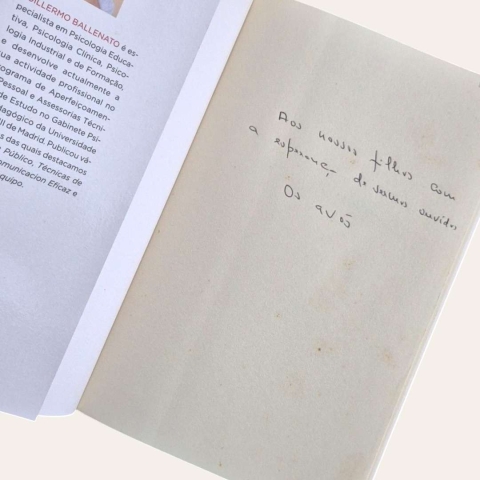 GUILLERMO BALLENATO é es-
pecialista em Psicologia Educa-
tiva, Psicologia Clínica, Psico-
logia Industrial e de Formação,
e desenvolve actualmente a
sua actividade profissional no
Programa de Aperfeiçoamen-
Pessoal e Assessorias Técni-
de Estudo no Gabinete Psi-
dagógico da Universidade
III de Madrid. Publicou vá-
das quais destacamos
Público, Técnicas de
Comunicacion Eficaz e
Aos nossos filhos com
a esperança de sermos ouvidos
Os avós